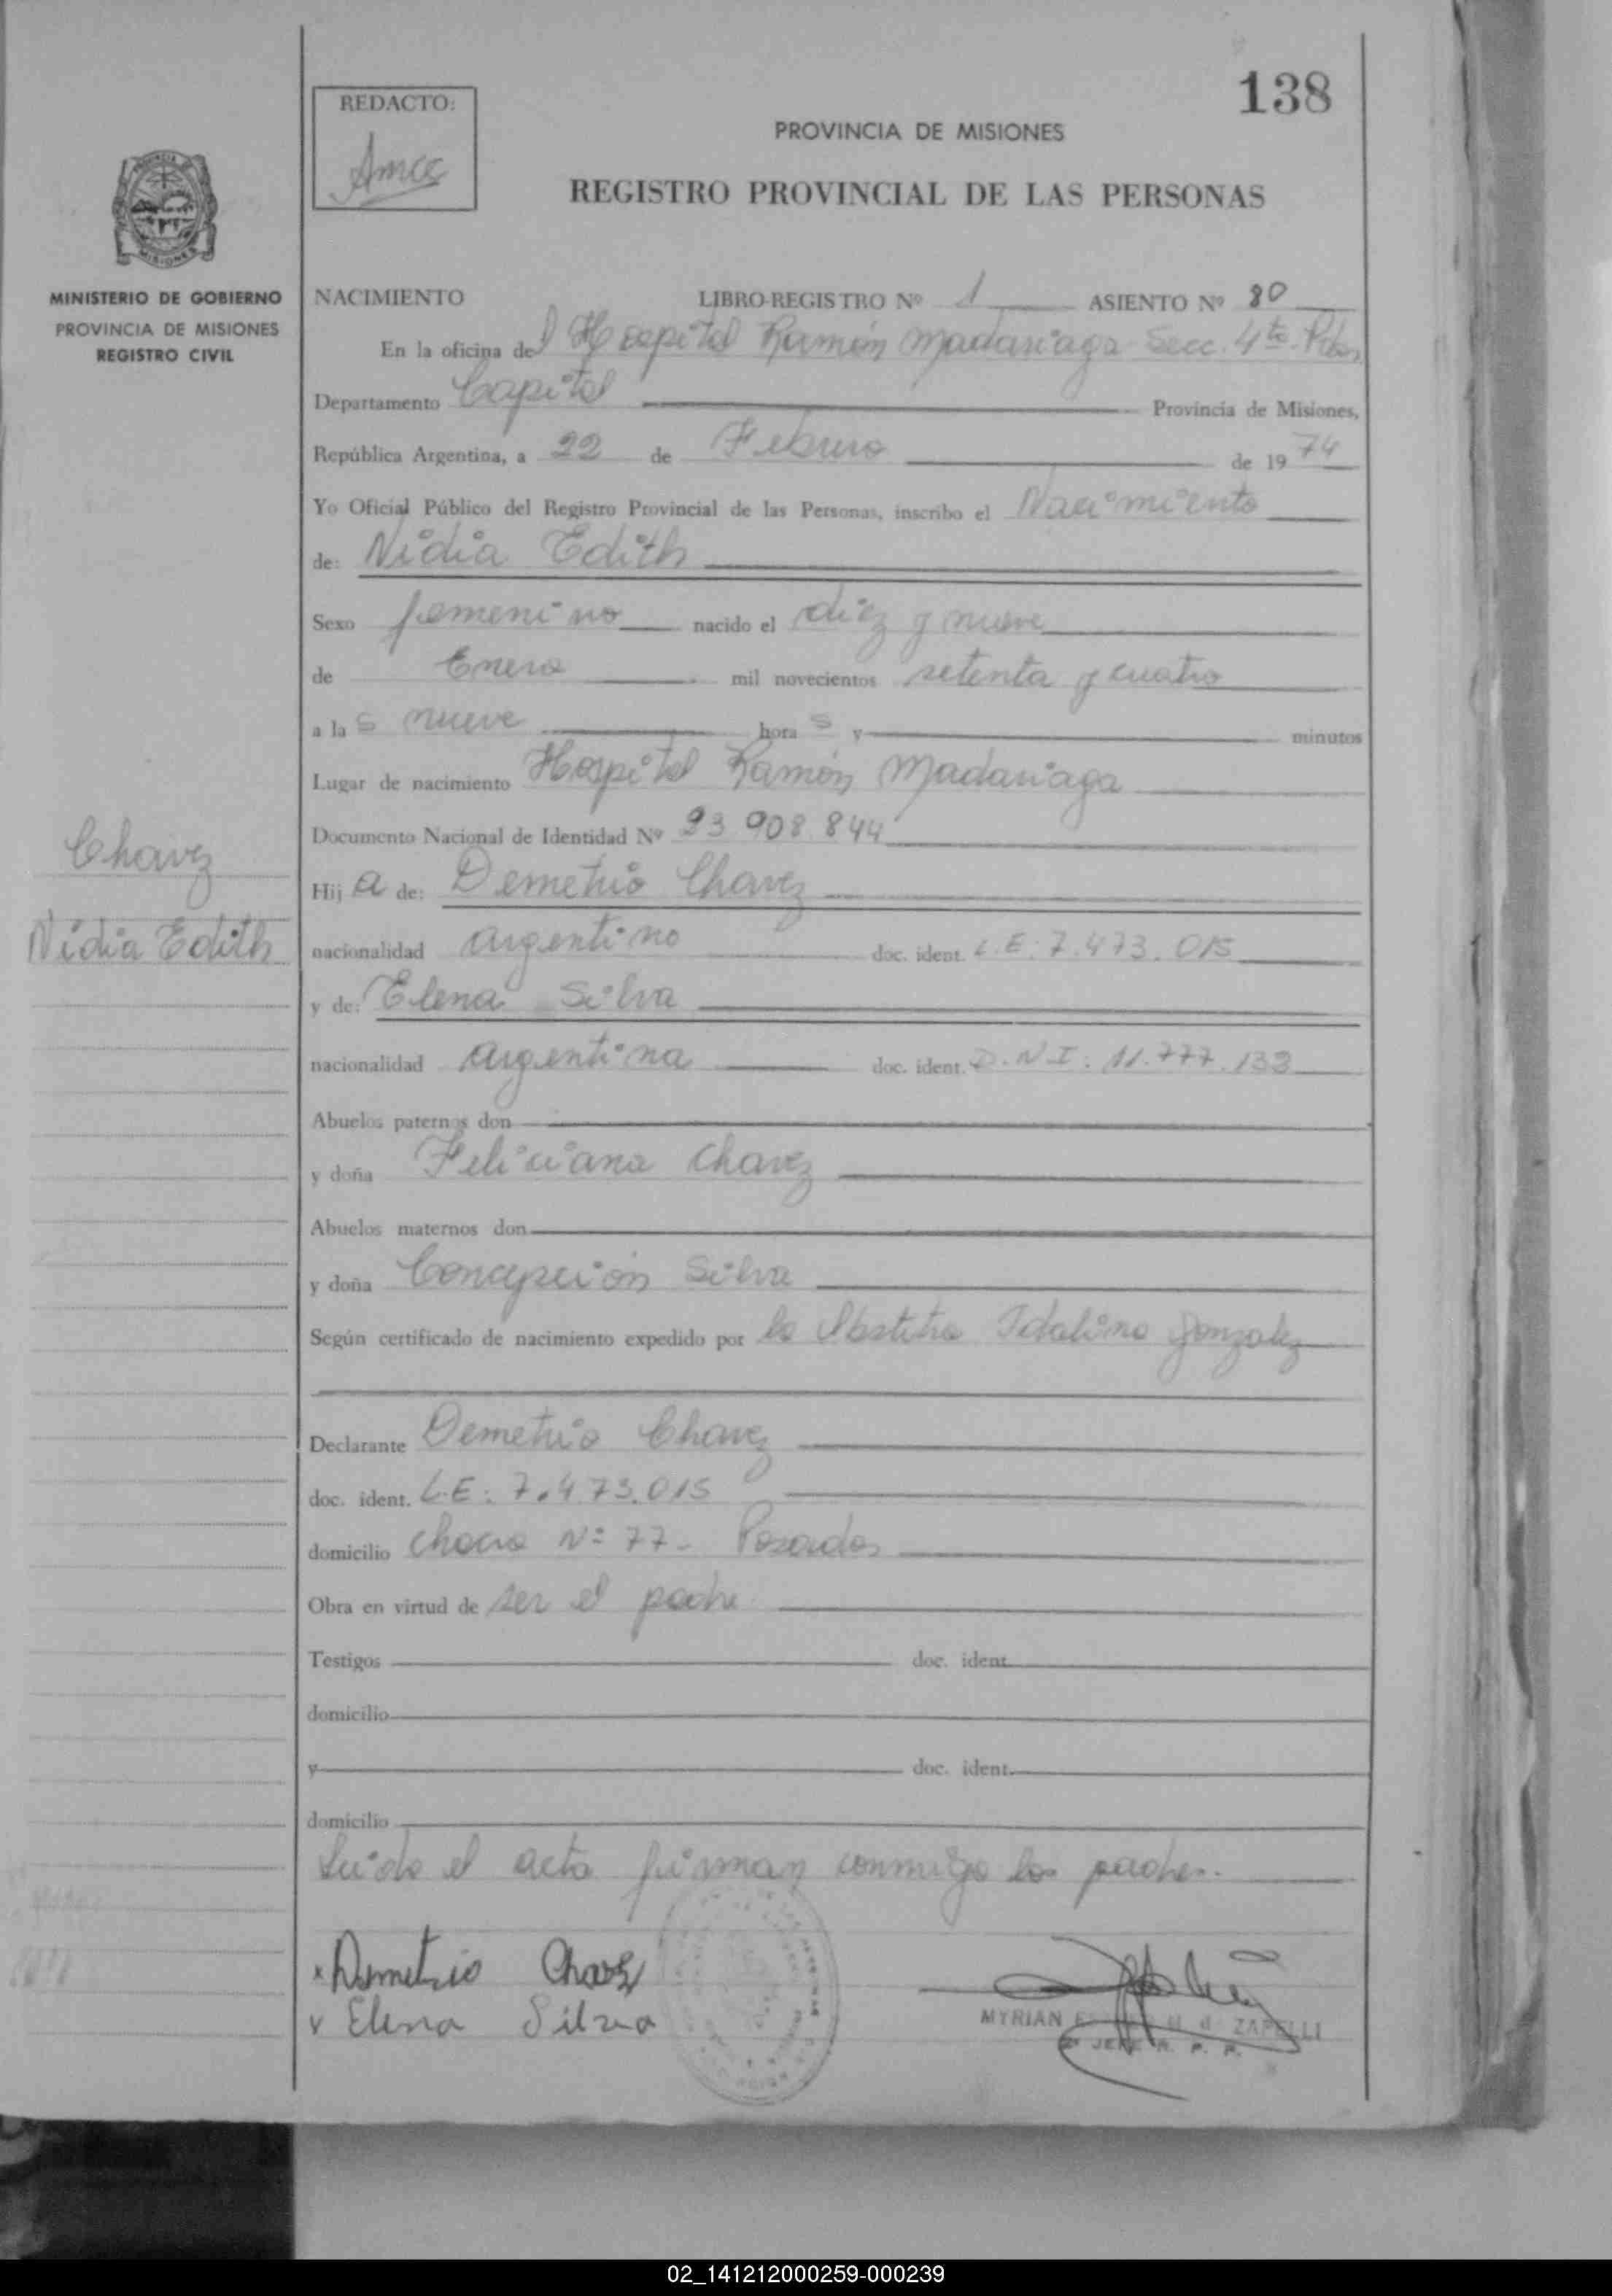 138
REDACTO:
PROVINCIA DE MISIONES
REGISTRO PROVINCIAL DE LAS PERSONAS
MISIONES
MINISTERIO DE GOBIERNO
PROVINCIA DE MISIONES
REGISTRO CIVIL
NACIMIENTO LIBRO-REGISTRO Nº 1 ASIENTO Nº 80
En la oficina del Hospital Ramón Madariaga Secc. 4ta Pdas
Departamento Capital Provincia de Misiones,
República Argentina, a 22 de Febrero de 1974
Yo Oficial Público del Registro Provincial de las Personas, inscribo el Nacimiento
de: Nidia Edith
Sexo femenino nacido el diez y nueve
de Enero mil novecientos setenta y cuatro
a las nueve horas y minutos
Lugar de nacimiento Hospital Ramón Madariaga
Documento Nacional de Identidad Nº 23 908.844
Chavez
Nidia Edith
Hija de: Demetrio Chavez
nacionalidad argentino doc. ident. L.E: 7.473.015
y de: Elena Silva
nacionalidad argentina doc. ident. D.N.I: 11.777.133
Abuelos paternos don
y doña Feliciana Chavez
Abuelos maternos don
y doña Concepción Silva
Según certificado de nacimiento expedido por la Obstetra Idalina Gonzalez
Declarante Demetrio Chavez
doc. ident. L.E: 7.473.015
domicilio Chacra Nº 77 - Posadas
Obra en virtud de ser el padre
Testigos doc. ident.
domicilio
y doc. ident.
domicilio
Leida el acta firman conmigo los padres.
x Demetrio Chavez
x Elena Silva
MYRIAN ZAPELLI
2º JEFE R. P. P.
02_141212000259-000239